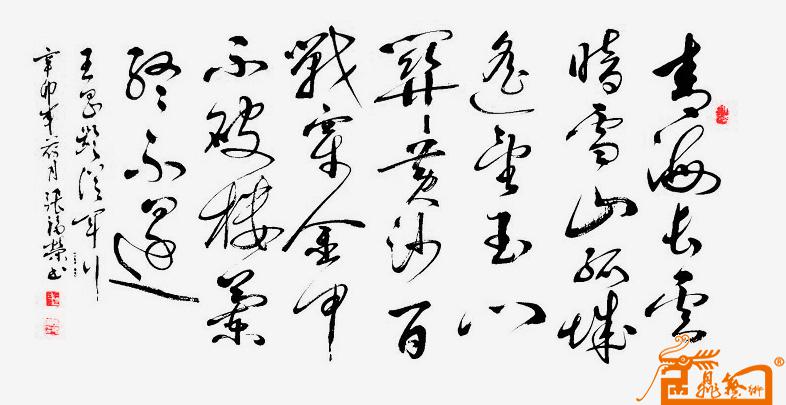 青海長雲
暗雪山孤城
遙望玉門
關黄沙百
戰穿金甲
不破樓蘭
終不還
王昌齡從軍行
辛卯年月張福榮書